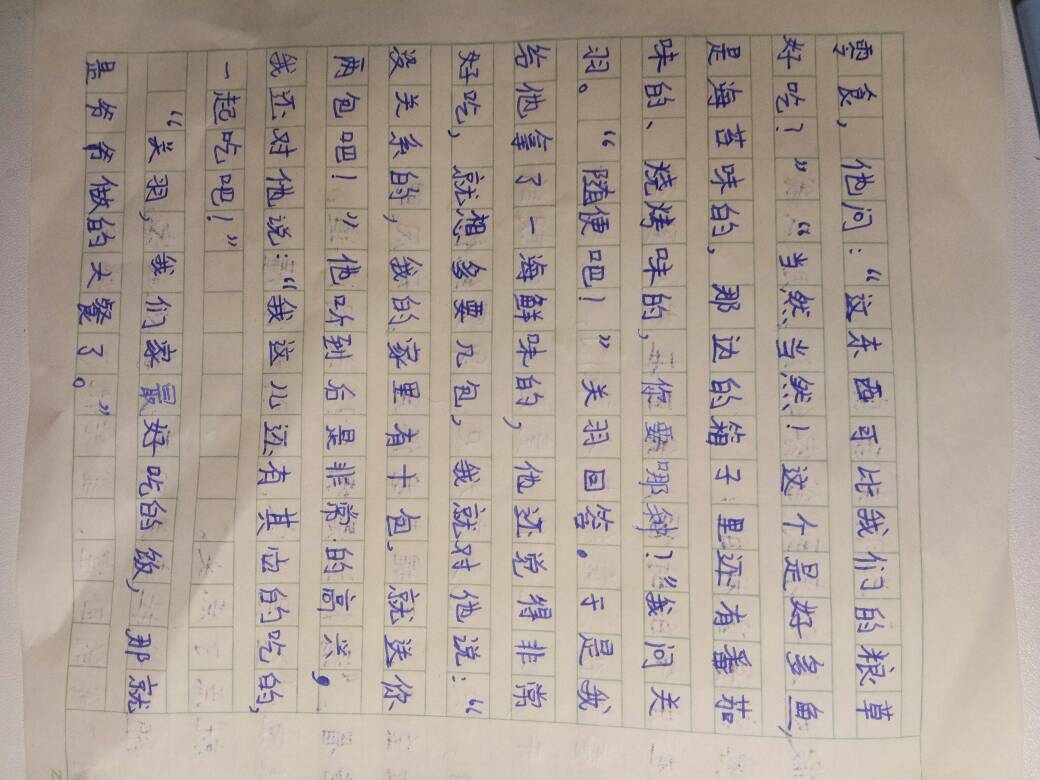 零食，他问：“这东西可比我们的粮草
好吃？”“当然，当然！这个是好多鱼，
是海苔味的，那边的箱子里还有番茄
味的、烧烤味的，你要哪种？”我问关
羽。“随便吧！”关羽回答。于是我
给他拿了一海鲜味的，他还说得非常
好吃，就想多要几包，我就对他说：“
没关系的，我的家里有十包，就送你
两包吧！”他听到后是非常的高兴，
我还对他说：“我这儿还有其他的吃的，
一起吃吧！”
“关羽，我们家最好吃的饭，那就
是爷爷做的大餐了。”